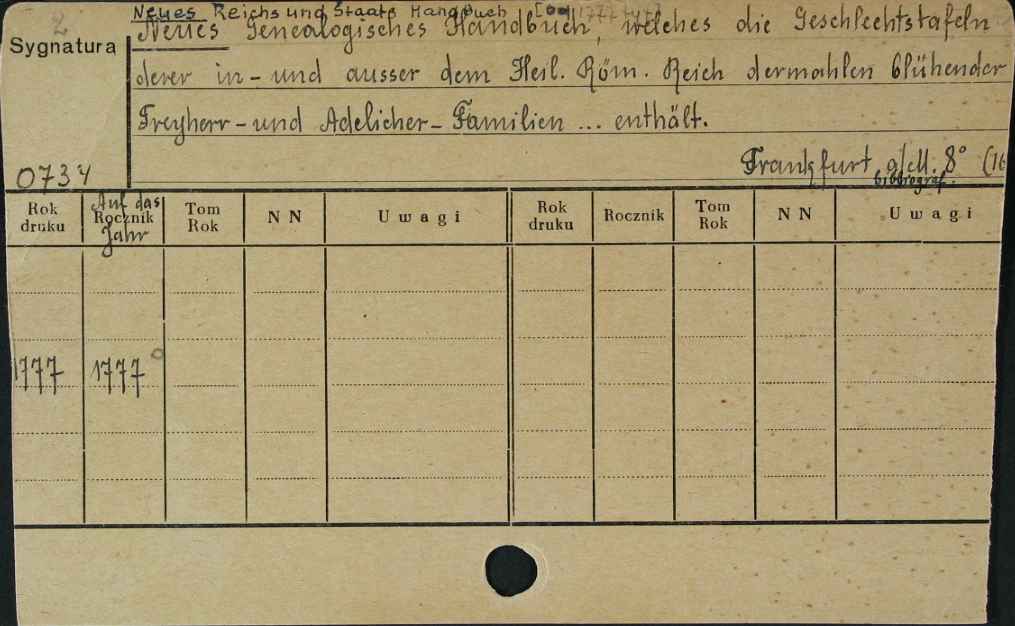 2
Neues Reichs und Staats Handbuch [od 1777
Sygnatura
Neues Genealogisches Handbuch, welches die Geschlechtstafeln
derer in- und ausser dem Heil. Röm. Reich dermahlen blühender
Freyherr- und Adelicher- Familien ... enthält.
Frankfurt a/M. 8° (16
bibliograf.
0734
Rok druku Auf das Rocznik Jahr Tom Rok N N Uwagi Rok druku Rocznik Tom Rok N N Uwagi
1777 1777